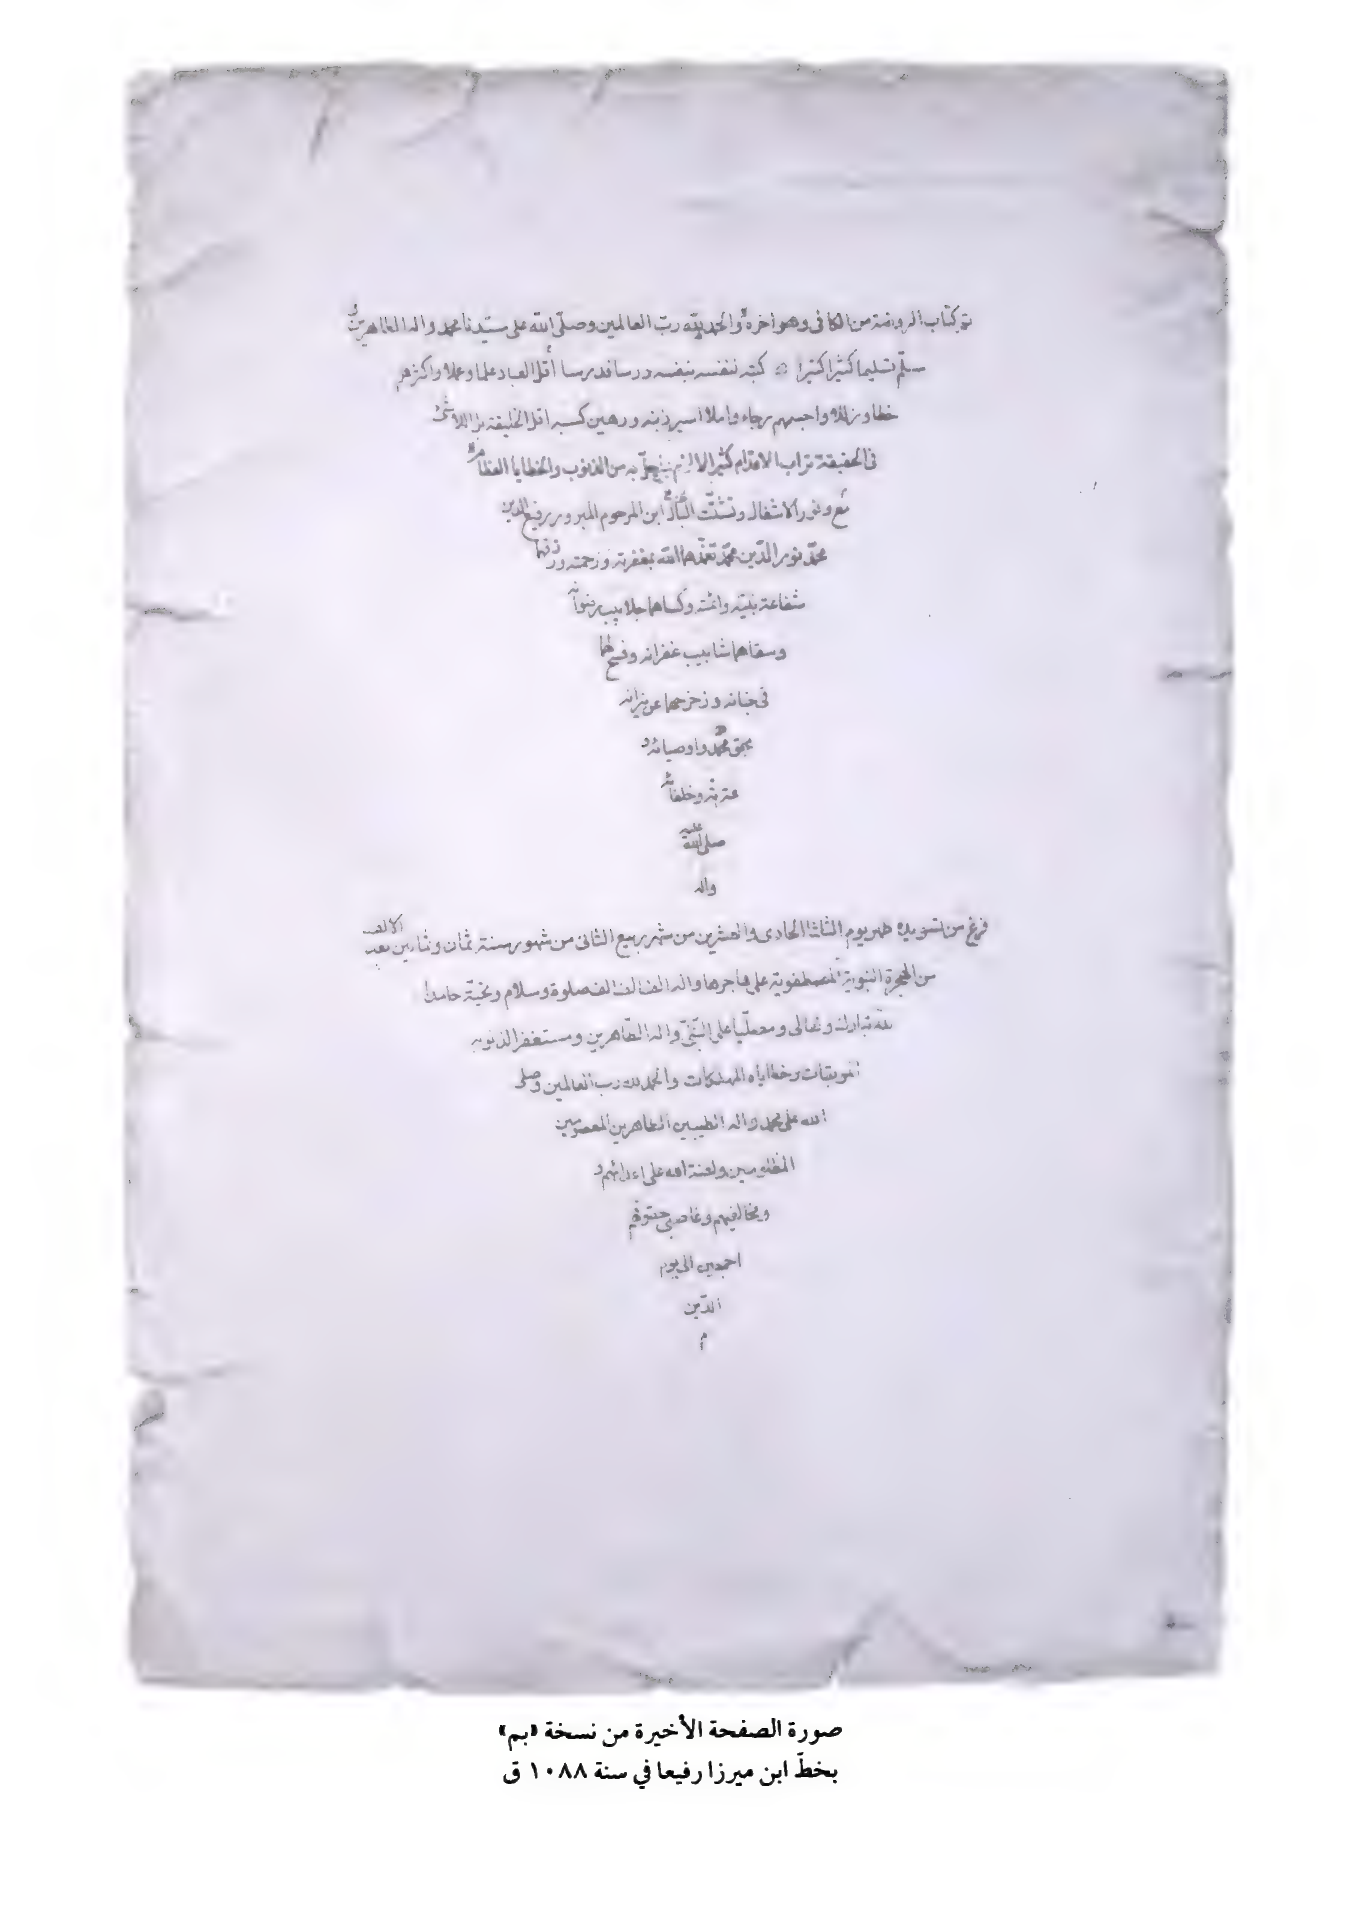 تم كتاب الروضة من الكافى وهو اخره والحمد لله رب العالمين وصلى الله على سيدنا محمد واله الطاهرين
سلم تسليما كثيرا كثيرا كتبه لنفسه بنفسه ودرسا فدرسا أقل العباد علما وعملا واكثرهم
خطا وزللا واحبهم رجاء واملا اسير ذنبه ورهين كسبه اقل الخليقة بل اللاشئ
فى الحقيقة تراب الاقدام كثير الالام من الذنوب والخطايا العظام
مع وفور الاشغال وتشتت البال ابن المرحوم المبرور رفيع الدين
محمد نور الدين محمد تغمدهما الله بمغفرته ورحمته ورزقهما
شفاعة نبيه وائمته وكساهما جلابيب رضوانه
وسقاهما شابيب غفرانه وفسح لهما
فى جنانه وزحزحهما عن نيرانه
بحق محمد واوصيائه و
عترته وخلفائه
صلى الله عليه
واله
فرغ من تسويده ظهر يوم الثلثا الحادى والعشرين من شهر ربيع الثانى من شهور سنة ثمان وثمانين بعد الالف
من الهجرة النبوية المصطفوية على هاجرها واله الف الف الف صلوة وسلام وتحية حامدا
لله تبارك وتعالى ومصليا على النبى واله الطاهرين ومستغفرا لذنوبه
الموبقات وخطاياه المهلكات والحمد لله رب العالمين وصلى
الله على محمد واله الطيبين الطاهرين المعصومين
المظلومين ولعنة الله على اعدائهم و
ومخالفيهم وغاصبى حقوقهم
اجمعين الى يوم
الدين
م
صورة الصفحة الأخيرة من نسخة «بم»
بخطّ ابن ميرزا رفيعا في سنة ١٠٨٨ ق